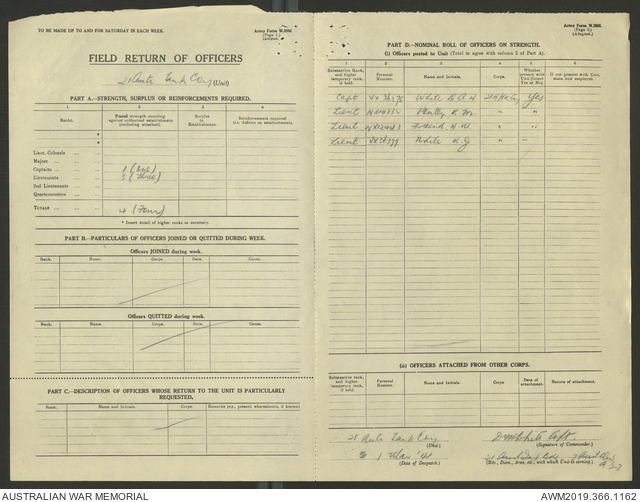 TO BE MADE UP TO AND FOR SATURDAY IN EACH WEEK.
Army Form W.3008
(Page 1.)
(Adapted.)
FIELD RETURN OF OFFICERS
Tank Coy (Unit)
PART A.—STRENGTH, SURPLUS OR REINFORCEMENTS REQUIRED.
1 2 3 4
Ranks. Posted strength counting against authorized establishment (excluding attached). Surplus to Establishment. Reinforcements required (i.e. deficits on establishment).
*
*
Lieut.-Colonels
Majors
Captains 1 (One)
Lieutenants 3 (Three)
2nd Lieutenants
Quartermasters
TOTALS 4 (Four)
* Insert detail of higher ranks as necessary.
PART B.—PARTICULARS OF OFFICERS JOINED OR QUITTED DURING WEEK.
Officers JOINED during week.
Rank. Name. Corps. Date. Cause.
Officers QUITTED during week.
Rank. Name. Corps. Date. Cause.
PART C.—DESCRIPTION OF OFFICERS WHOSE RETURN TO THE UNIT IS PARTICULARLY REQUESTED.
Rank. Name and Initials. Corps. Remarks (e.g., present whereabouts, if known)
Army Form W.3008.
(Page 2.)
(Adapted.)
PART D.—NOMINAL ROLL OF OFFICERS ON STRENGTH.
(i) Officers posted to Unit (Total to agree with column 2 of Part A).
1 2 3 4 5 6
Substantive Rank, and higher temporary rank, if held. Personal Number. Name and Initials. Corps. Whether present with Unit (Insert Yes or No). If not present with Unit, state how employed.
Capt White D A W Yes
Lieut " "
Lieut " "
Lieut White " "
(ii) OFFICERS ATTACHED FROM OTHER CORPS.
Substantive rank, and higher temporary rank, if held. Personal Number. Name and Initials. Corps Date of attachment. Nature of attachment.
Tank Coy
(Unit) (Signature of Commander.)
1
(Date of Despatch) (Bde., Divn., Area, etc., with which Unit is serving).
AUSTRALIAN WAR MEMORIAL
AWM2019.366.1162